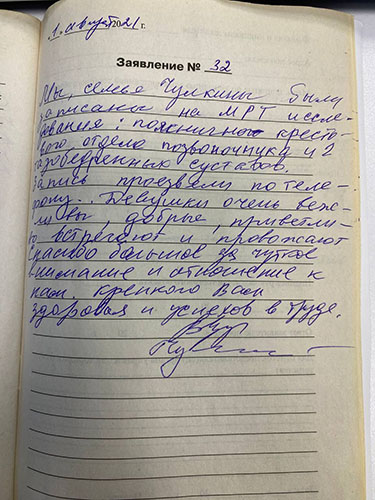 1. август 2021 г.
Заявление № 32
Мы, семья Чулкины были
записаны на МРТ иссле-
дования: пояснично кресто-
вого, отдела позвоночника и 2
тазобедренных суставов.
Запись произвели по теле-
фону. Девушки очень веж-
ливы, добрые, приветли-
во встречают и провожают
Спасибо большое за чуткое
внимание и отношение к
нам. Крепкого Вам
здоровья и успехов в труде.